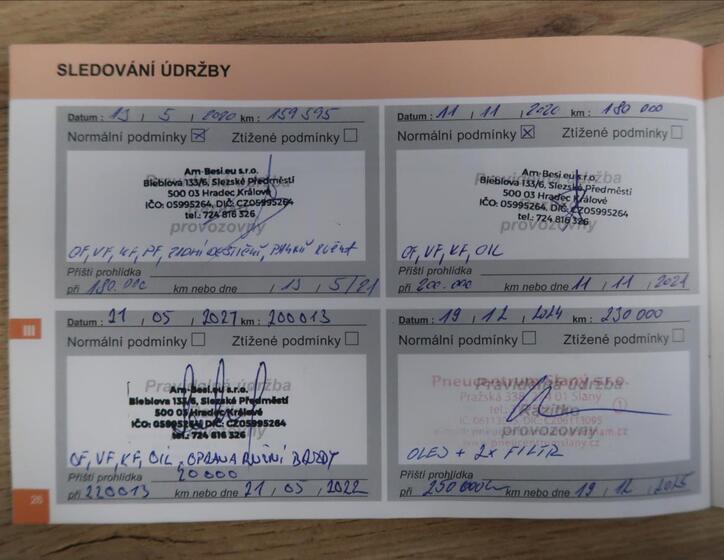 SLEDOVÁNÍ ÚDRŽBY
Datum : 13 , 5 , 2020 km : 159595
Normální podmínky ☒ Ztížené podmínky ☐
Pravidelná údržba
Am-Besi.eu s.r.o.
Bieblova 133/6, Slezské Předměstí
500 03 Hradec Králové
IČO: 05995264, DIČ: CZ05995264
tel.: 724 816 326
provozovny
OF, VF, KF, PF, ZADNÍ
Příští prohlídka
při 180.000 km nebo dne 13 , 5/21
Datum : 11 , 11 , 2020 km : 180 000
Normální podmínky ☒ Ztížené podmínky ☐
Pravidelná údržba
Am-Besi.eu s.r.o.
Bieblova 133/6, Slezské Předměstí
500 03 Hradec Králové
IČO: 05995264, DIČ: CZ05995264
tel.: 724 816 326
provozovny
OF, VF, KF, OIL
Příští prohlídka
při 200.000 km nebo dne 11 , 11 , 2021
III
Datum : 21 , 05 , 2021 km : 200013
Normální podmínky ☐ Ztížené podmínky ☐
Pravidelná údržba
Am-Besi.eu s.r.o.
Bieblova 133/6, Slezské Předměstí
500 03 Hradec Králové
IČO: 05995264, DIČ: CZ05995264
tel.: 724 816 326
OF, VF, KF, OIL, OPRAVA RUČNÍ BRZDY
Příští prohlídka 20000
při 220013 km nebo dne 21 , 05 , 2022
Datum : 19 , 12 , 2024 km : 230 000
Normální podmínky ☐ Ztížené podmínky ☐
Pravidelná údržba
Pneucentrum Slaný s.r.o.
Pražská 338, 274 01 Slaný
tel.:
Razítko
provozovny
www.pneucentrumslany.cz
OLEJ + 2x FILTR
Příští prohlídka
při 250000 km nebo dne 19 , 12 , 2025
26